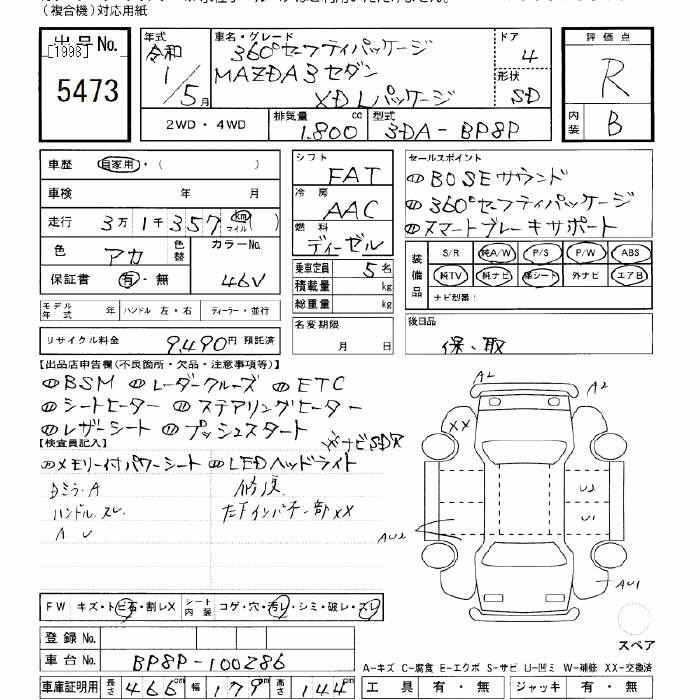 (複合機)対応用紙
出品No.
[1998]
5473
年式
令和
1/5月
車名・グレード
360°セーフティパッケージ
MAZDA3 セダン
XD Lパッケージ
ドア
4
形状
SD
2WD・4WD
排気量
1.800 cc
型式
3DA-BP8P
評価点
R
内装
B
車歴 自家用・( )
車検 年 月
走行 3万1千357 km マイル
色 アカ 色替
カラーNo. 46V
保証書 有・無
モデル年式 年 ハンドル 左・右 ディーラー・並行
リサイクル料金 9,490円 預託済
シフト
FAT
冷房
AAC
燃料
ディーゼル
乗車定員 5名
積載量 kg
総重量 kg
名変期限
月 日
セールスポイント
BOSEサウンド
360°セーフティパッケージ
スマートブレーキサポート
装備品
S/R 純A/W P/S P/W ABS
純TV 純ナビ 革シート 外ナビ エアB
ナビ型番:
後日品
保、取
【出品店申告欄(不良箇所・欠品・注意事項等)】
BSM レーダークルーズ ETC
シートヒーター ステアリングヒーター
レザーシート プッシュスタート
※ナビSDR
【検査員記入】
メモリー付パワーシート LEDヘッドライト
Dミラ-A
ハンドル スレ
A U
修復
左Fインパネ一部XX
A2
A2
XX
U2
U1
AU2
AU1
スペア
FW キズ・トビ石・割レX シート内装 コゲ・穴・汚レ・シミ・破レ・スレ
登録No.
車台No. BP8P-100286
車庫証明用 長さ 466cm 幅 179cm 高さ 144cm
A-キズ C-腐食 E-エクボ S-サビ U-凹ミ W-補修 XX-交換済
工具 有・無 ジャッキ 有・無